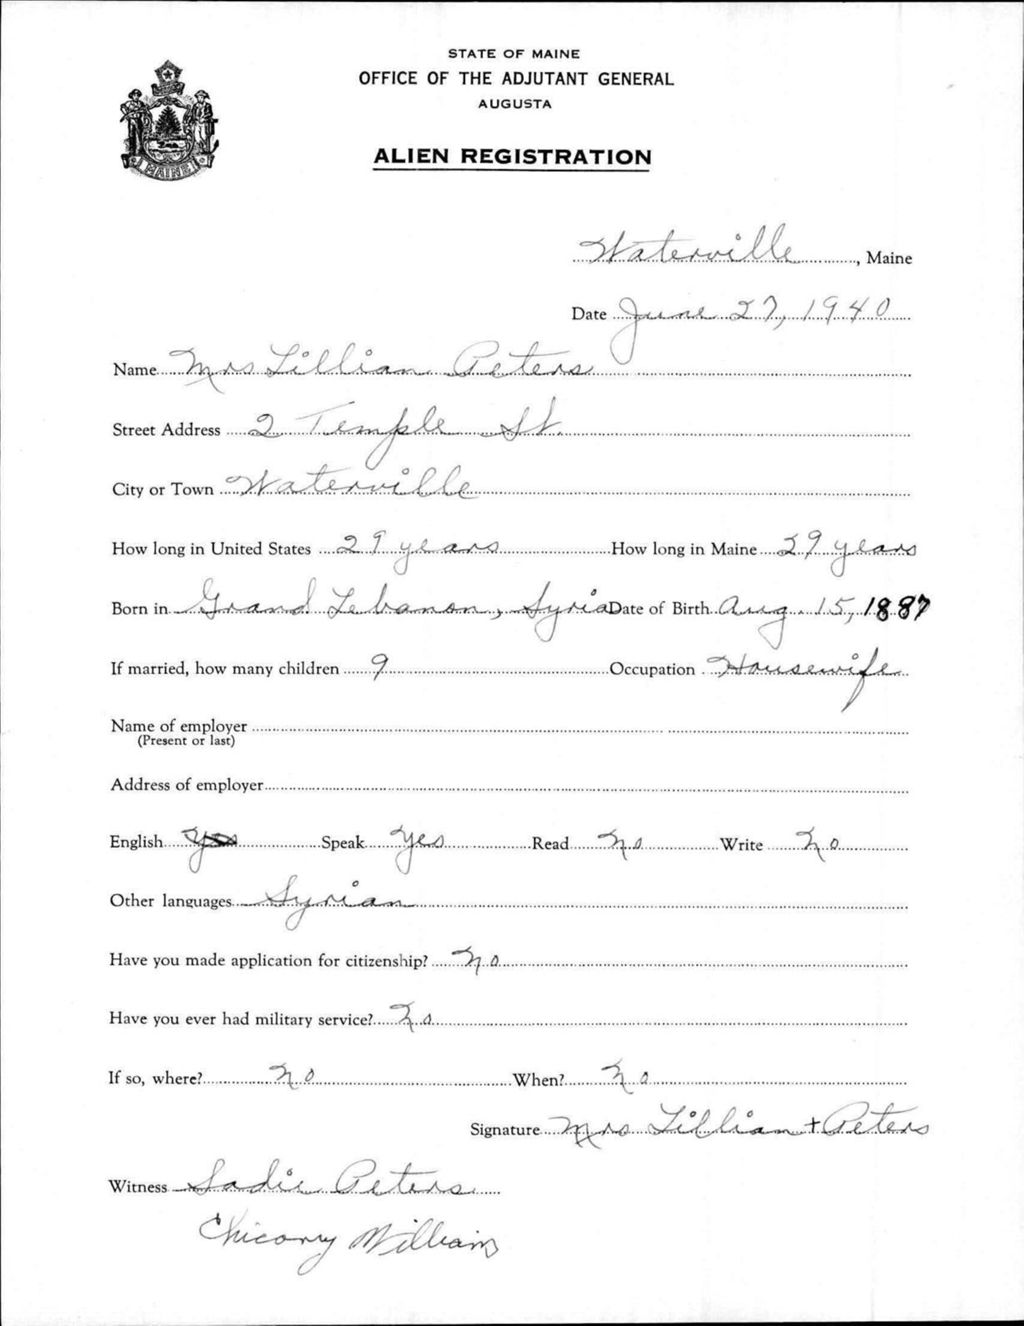 STATE OF MAINE
OFFICE OF THE ADJUTANT GENERAL
AUGUSTA
ALIEN REGISTRATION
MAINE
Waterville, Maine
Date June 27, 1940
Name Mrs Lillian Peters
Street Address 2 Temple St.
City or Town Waterville
How long in United States 29 years How long in Maine 29 years
Born in Grand Lebanon, Syria Date of Birth Aug. 15, 1887
If married, how many children 9 Occupation Housewife
Name of employer
(Present or last)
Address of employer
English Yes Speak Yes Read No Write No
Other languages Syrian
Have you made application for citizenship? No
Have you ever had military service? No
If so, where? No When? No
Signature Mrs Lillian + Peters
Witness Sadie Peters
William